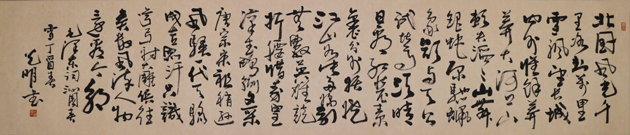 北国風光千
里冰封万里
雪飘望长城
内外惟馀莽
莽大河上下
顿失滔滔山舞
银蛇原驰蜡
象欲与天公
试比高须晴
日看红装素
裹分外妖娆
江山如此多娇引
无数英雄竞
折腰惜秦皇
汉武略输文采
唐宗宋祖稍逊
风骚一代天骄
成吉思汗只识
弯弓射大雕俱往
矣数风流人物
还看今朝
毛泽东词沁园春
雪丁酉春
光明书